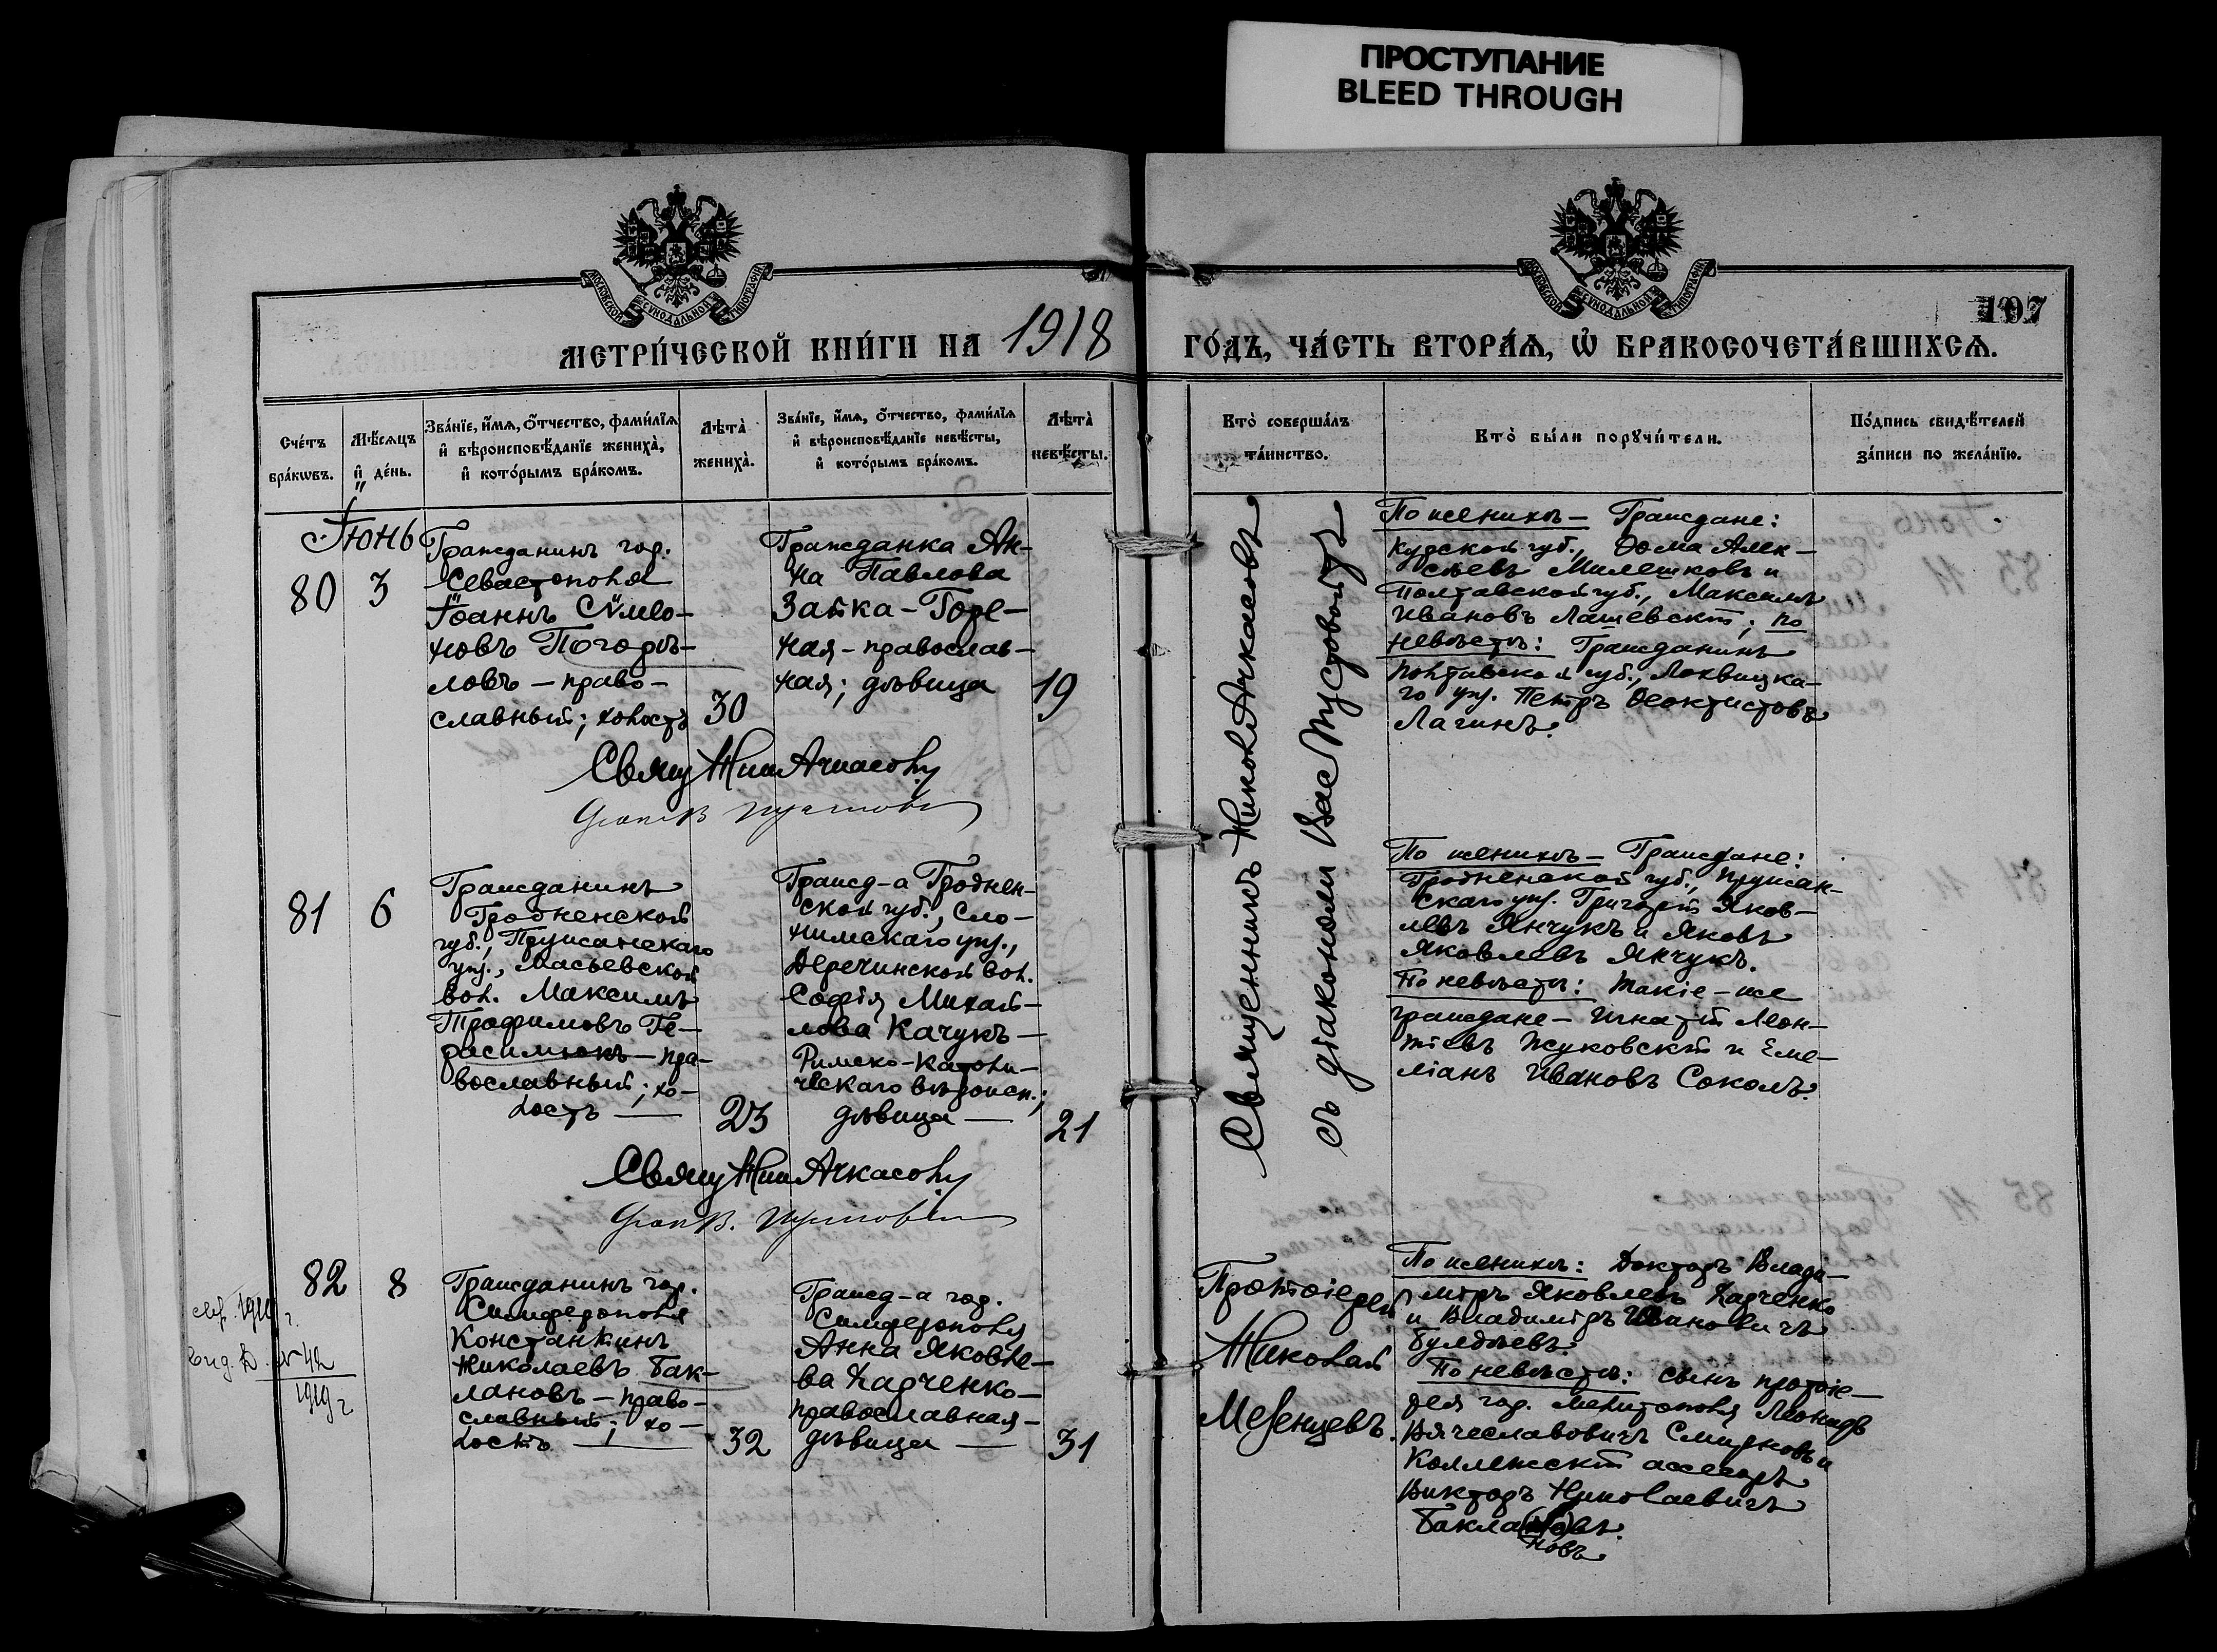 ПРОСТУПАНИЕ
BLEED THROUGH
МОСКОВСКОЙ СѴНОДАЛЬНОЙ ТИПОГРАФІИ
МОСКОВСКОЙ СѴНОДАЛЬНОЙ ТИПОГРАФІИ
107
МЕТРИ́ЧЕСКОЙ КНИ́ГИ НА 1918 ГО́ДЪ, ЧА́СТЬ ВТОРА́Я, Ѡ҆ БРАКОСОЧЕТА́ВШИХСЯ.
Сче́тъ бра́кѡвъ.
Мѣ́сяцъ и҆ де́нь.
Зва́нїе, и҆́мя, ѻ҆́тчество, фами́лїя
и҆ вѣроисповѣ́данїе жениха̀,
и҆ кото́рымъ бра́комъ.
Лѣта̀
жениха̀.
Зва́нїе, и҆́мя, ѻ҆́тчество, фами́лїя
и҆ вѣроисповѣ́данїе невѣ́сты,
и҆ кото́рымъ бра́комъ.
Лѣта̀
невѣ́сты.
Кто̀ соверша́лъ
та́инство.
Кто̀ бы́ли порꙋчи́тели.
По́дпись свидѣ́телей
за́писи по жела́нїю.
Іюнь
80
3
Гражданинъ гор.
Севастополя
Іоаннъ Сѵмео-
новъ Погорѣ-
ловъ — право-
славный; холостъ
30
Гражданка Ан-
на Павлова
Зайка-Горе-
ная - православ-
ная; дѣвица
19
Священникъ Никол. Ачкасовъ
съ діакономъ Вас. Пустовой
По женихѣ — Граждане:
Курской губ., Ѳома Алек-
сѣевъ Милешковъ и
Полтавской губ., Максимъ
Ивановъ Лашевскій; по
невѣстѣ: Гражданинъ
Полтавской губ., Лохвицка-
го уѣз. Петръ Ѳеоктистовъ
Лагинъ.
Свящ. Ник. Ачкасовъ
81
6
Гражданинъ
Гродненской
губ., Пружанскаго
уѣз., Масьевской
вол. Максимъ
Трофимовъ Ге-
расимюкъ — пра-
вославный; хо-
лостъ —
23
Гражд-а Гроднен-
ской губ., Сло-
нимскаго уѣз.,
Деречинской вол.
Софія Михай-
лова Качукъ —
Римско-Католи-
ческаго вѣроисп.;
дѣвица —
21
По женихѣ — Граждане:
Гродненской губ., Пружан-
скаго уѣз. Григорій Яков-
левъ Янчукъ и Яковъ
Яковлевъ Янчукъ.
По невѣстѣ: такіе-же
граждане — Игнатій Леон-
тіевъ Жуковскій и Еме-
ліанъ Ивановъ Соколъ.
Свящ. Ник. Ачкасовъ
82
8
1919 г.
Гражданинъ гор.
Симферополя
Константинъ
Николаевъ Бак-
лановъ — право-
славный; хо-
лостъ —
32
Гражд-а гор.
Симферополя
Анна Яковле-
ва Харченко —
православная —
дѣвица —
31
Протоіерей
Николай
Мезенцевъ.
По женихѣ: Докторъ Влади-
міръ Яковлевъ Харченко
и Владиміръ Ивановичъ
Булдѣевъ.
По невѣстѣ: сынъ протоіе-
рея гор. Мелитополя Леонидъ
Вячеславовичъ Смирновъ и
Коллежскій ассесоръ
Викторъ Николаевичъ
Баклановъ.
новъ.